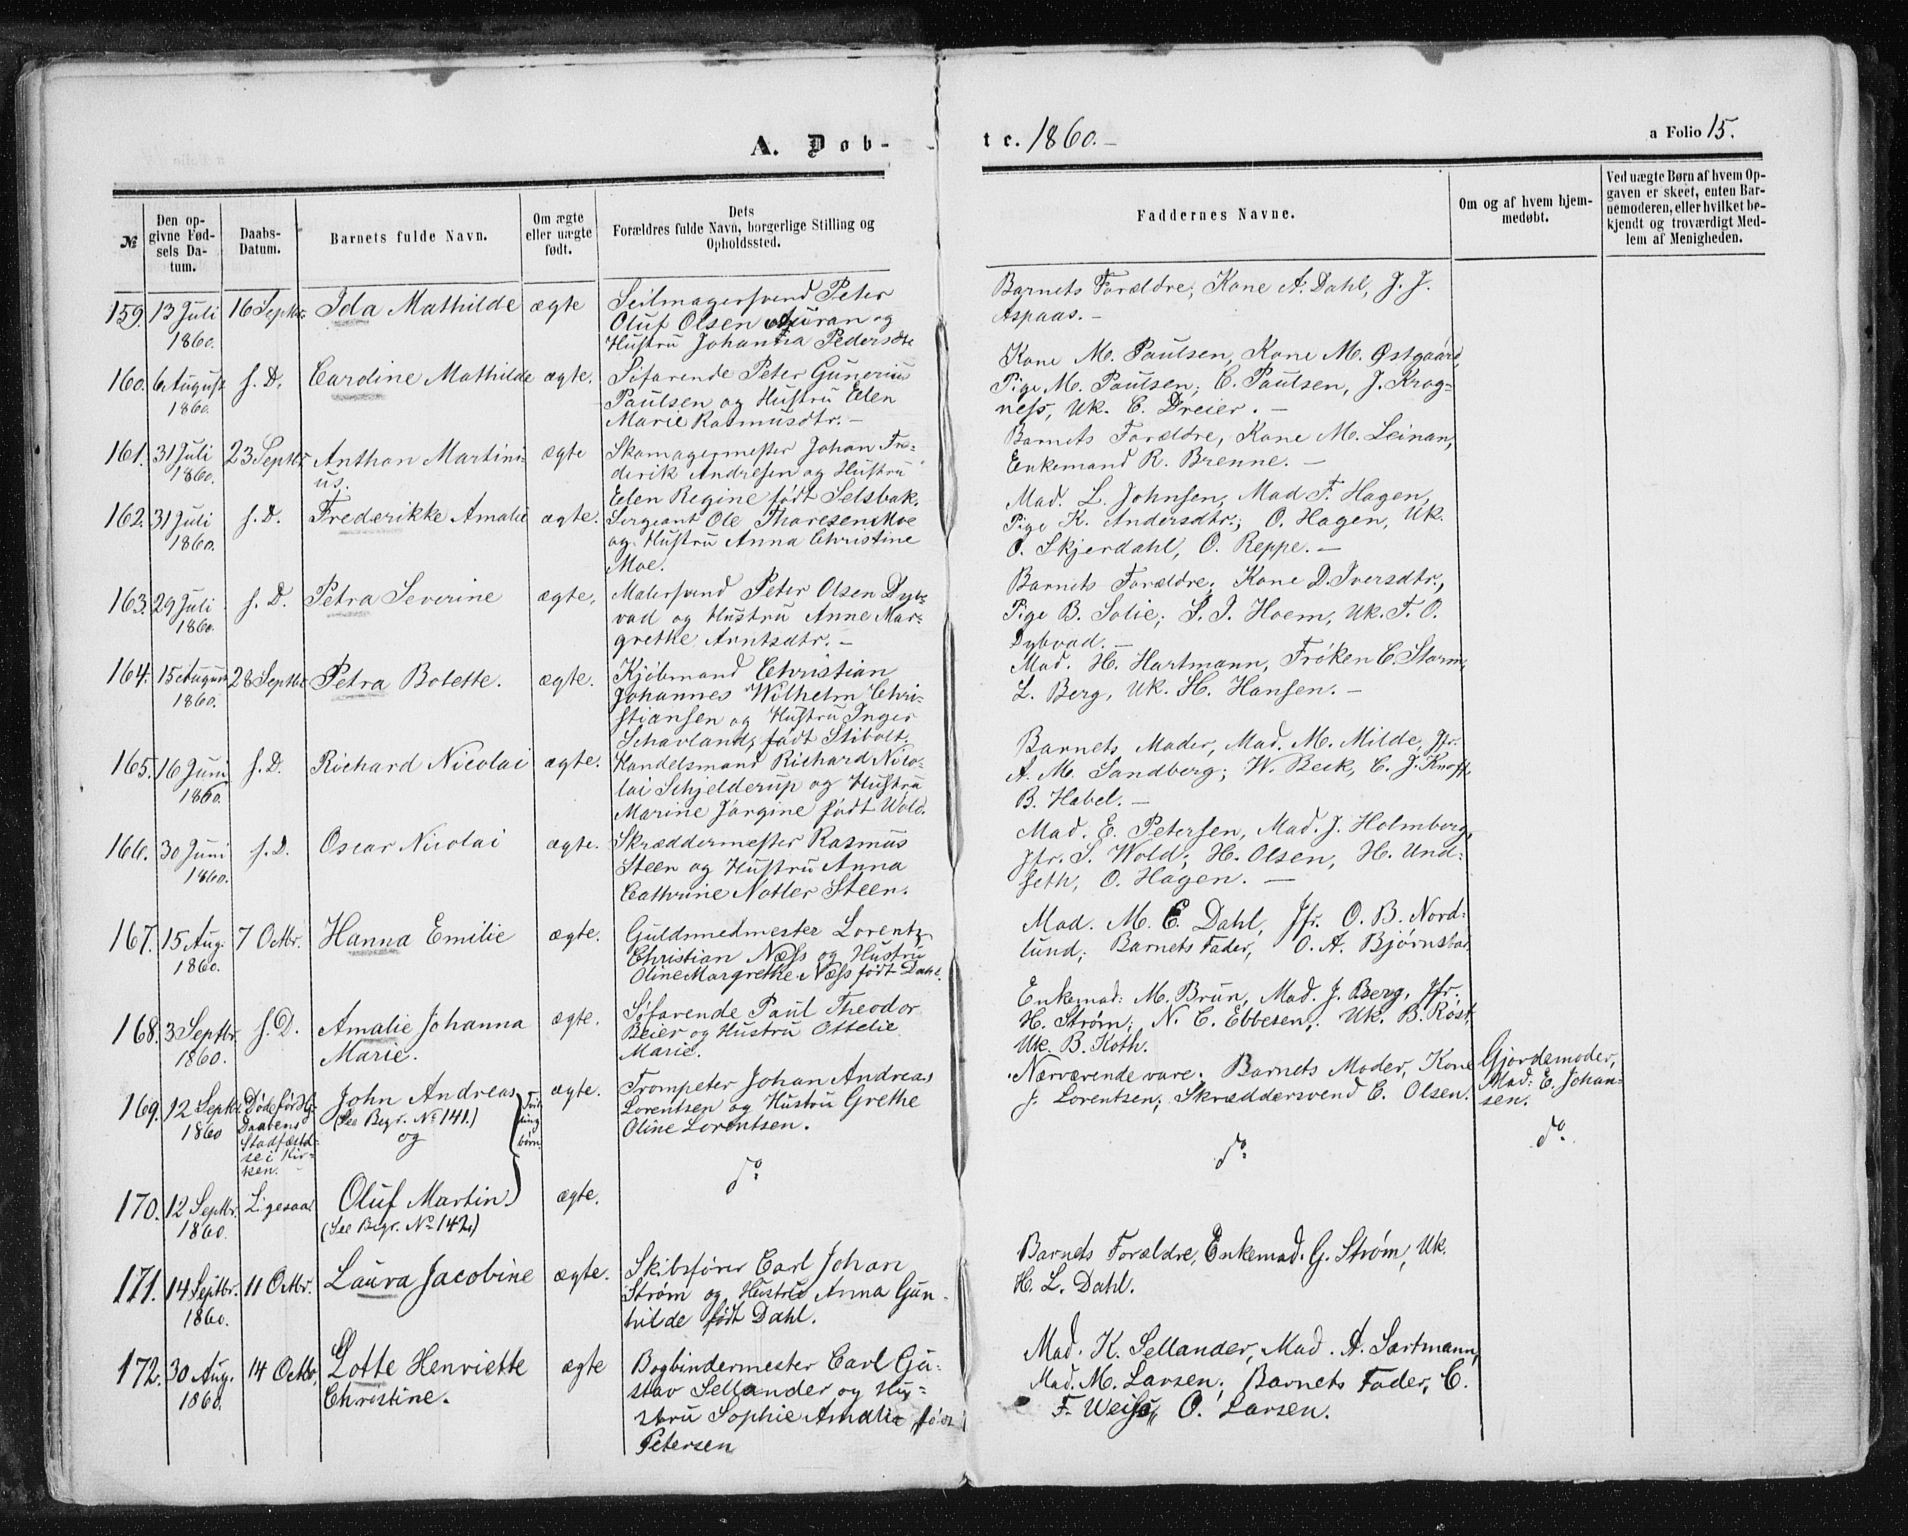 A. Döb-
te. 1860.-
a Folio 15.
№
Den op-
givne Fød-
sels Da-
tum.
Daabs-
Datum.
Barnets fulde Navn.
Om ægte
eller uægte
født.
Dets
Forældres fulde Navn, borgerlige Stilling og
Opholdssted.
Faddernes Navne.
Om og af hvem hjem-
medøbt.
Ved uægte Børn af hvem Op-
gaven er skeet, enten Bar-
nemoderen, eller hvilket be-
kjendt og troværdigt Med-
lem af Menigheden.
159. 13 Juli 16 Septbr. Ida Mathilde ægte Seilmagersvend Peter
1860. Oluf Olsen og
Hustru Johanna Pedersdtr
Barnets Forældre, Kone A. Dahl, J. J.
Aspaas. -
160. 6 August s. D. Caroline Mathilde ægte. Søfarende Peter Gunerius
1860. Paulsen og Hustru Elen
Marie Rasmusdtr. -
Kone M. Paulsen, Kone M. Østgaard,
Pige M. Paulsen; C. Paulsen, J. Krog-
ness, Uk. C. Dreier. -
161. 31 Juli 23 Septbr Anthon Martini- ægte Skomagermester Johan Fre-
1860. us. derik Andresen og Hustru
Elen Regine født Selsbak.
Barnets Forældre, Kone M. Leinan,
Enkemand R. Brenne. -
162. 31 Juli s. D. Frederikke Amalie ægte. Sergeant Ole Thoresen Moe
1860. og Hustru Anna Christine
Moe.
Mad. L. Johnsen, Mad F. Hagen,
Pige K. Andersdtr.; O. Hagen, Uk.
O. Skjerdahl, O. Reppe. -
163. 29 Juli s. D. Petra Severine ægte. Malersvend Peter Olsen Dyb-
1860. vad og Hustru Anne Mar-
grethe Arntsdtr. -
Barnets Forældre, Kone D. Iversdtr.,
Pige B. Solie; S. I. Hoem, Uk. T. O.
Dybvad. -
164. 15 August 28 Septbr Petra Bolette. ægte. Kjøbmand Christian
1860. Johannes Wilhelm Chri-
stiansen og Hustru Inger
Schavland, født Stibolt.
Mad. H. Hartmann, Frøken C. Storm,
L. Berg, Uk. H. Hansen. -
165. 16 Juni s. D. Richard Nicolai ægte. Handelsmand Richard Nico-
1860. lai Schjelderup og Hustru
Marine Jørgine født Wold.
Barnets Moder, Mad. M. Milde, Jfr.
A. M. Sandberg; W. Beck, C. J. Knoff,
B. Habel. -
166. 30 Juni s. D. Oscar Nicolai ægte. Skræddermester Rasmus
1860. Steen og Hustru Anna
Cathrine Notler Steen.
Mad. E. Petersen, Mad. J. Holmberg,
Jfr. S. Wold; H. Olsen, H. Und-
seth, O. Hagen. -
167. 15 Aug. 7 Octbr. Hanna Emilie ægte. Guldsmedmester Lorentz
1860. Christian Næss og Hustru
Oline Margrethe Næss født Dahl.
Mad. M. E. Dahl, Jfr. O. B. Nord-
lund; Barnets Fader, O. A. Bjørnstad
168. 3 Septbr. s. D. Amalie Johanna ægte. Søfarende Paul Theodor
1860. Marie. Beier og Hustru Ottelie
Marie.
Enkemad: M. Brun, Mad. J. Berg, Jfr.
H. Strøm; N. C. Ebbesen, Uk. B. Rost,
Uk. B. Koth.
169. 12 Septbr Døde før
1860 Daabens
Stadfæstel-
se i Kir-
ken.
John Andreas
(See Begr. No 141.)
og
Tvil-
ling-
børn
ægte. Trompeter Johan Andreas
Lorentsen og Hustru Grethe
Oline Lorentsen.
Nærværende vare. Barnets Moder, Kone
J. Lorentsen; Skræddersvend C. Olsen.
Gjordemoder,
Mad: E. Johan-
sen.
170. 12 Septbr. Ligesaa Oluf Martin ægte. do
1860. (See Begr. No 142.)
do
do
171. 14 Septbr. 11 Octbr. Laura Jacobine ægte. Skibsfører Carl Johan
1860. Strøm og Hustru Anna Gun-
hilde født Dahl.
Barnets Forældre, Enkemad. G. Strøm, Uk.
H. L. Dahl.
172. 30 Aug. 14 Octbr. Lotte Henriette ægte Bogbindermester Carl Gu-
1860. Christine. stav Sellander og Hu-
stru Sophie Amalie født
Petersen
Mad. K. Sellander, Mad. A. Sartmann,
Mad. M. Larsen; Barnets Fader, C.
F. Weiss, O. Larsen.